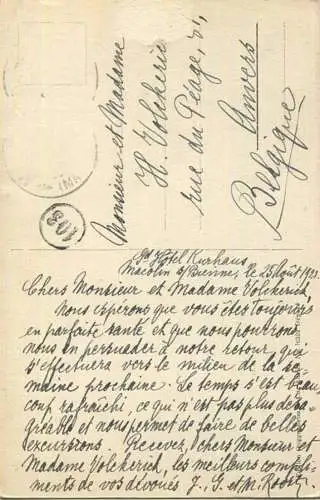 Monsieur et Madame
H. Volckerick
rue du Péage, 31,
Anvers
Belgique
Gd Hôtel Kurhaus
Macolin s/Bienne, le 25 Août 1921.
Chers Monsieur et Madame Volckerick,
Nous espérons que vous êtes toujours
en parfaite santé et que nous pourrons
nous en persuader à notre retour, qui
s'effectuera vers le milien de la se-
maine prochaine. Le temps s'est beau-
coup rafraîchi, ce qui n'est pas plus désa-
gréable et nous permet de faire de belles
excursions. Recevez, chers Monsieur et
Madame Volckerick, les meilleurs compli-
ments de vos dévoués J., G. et M.